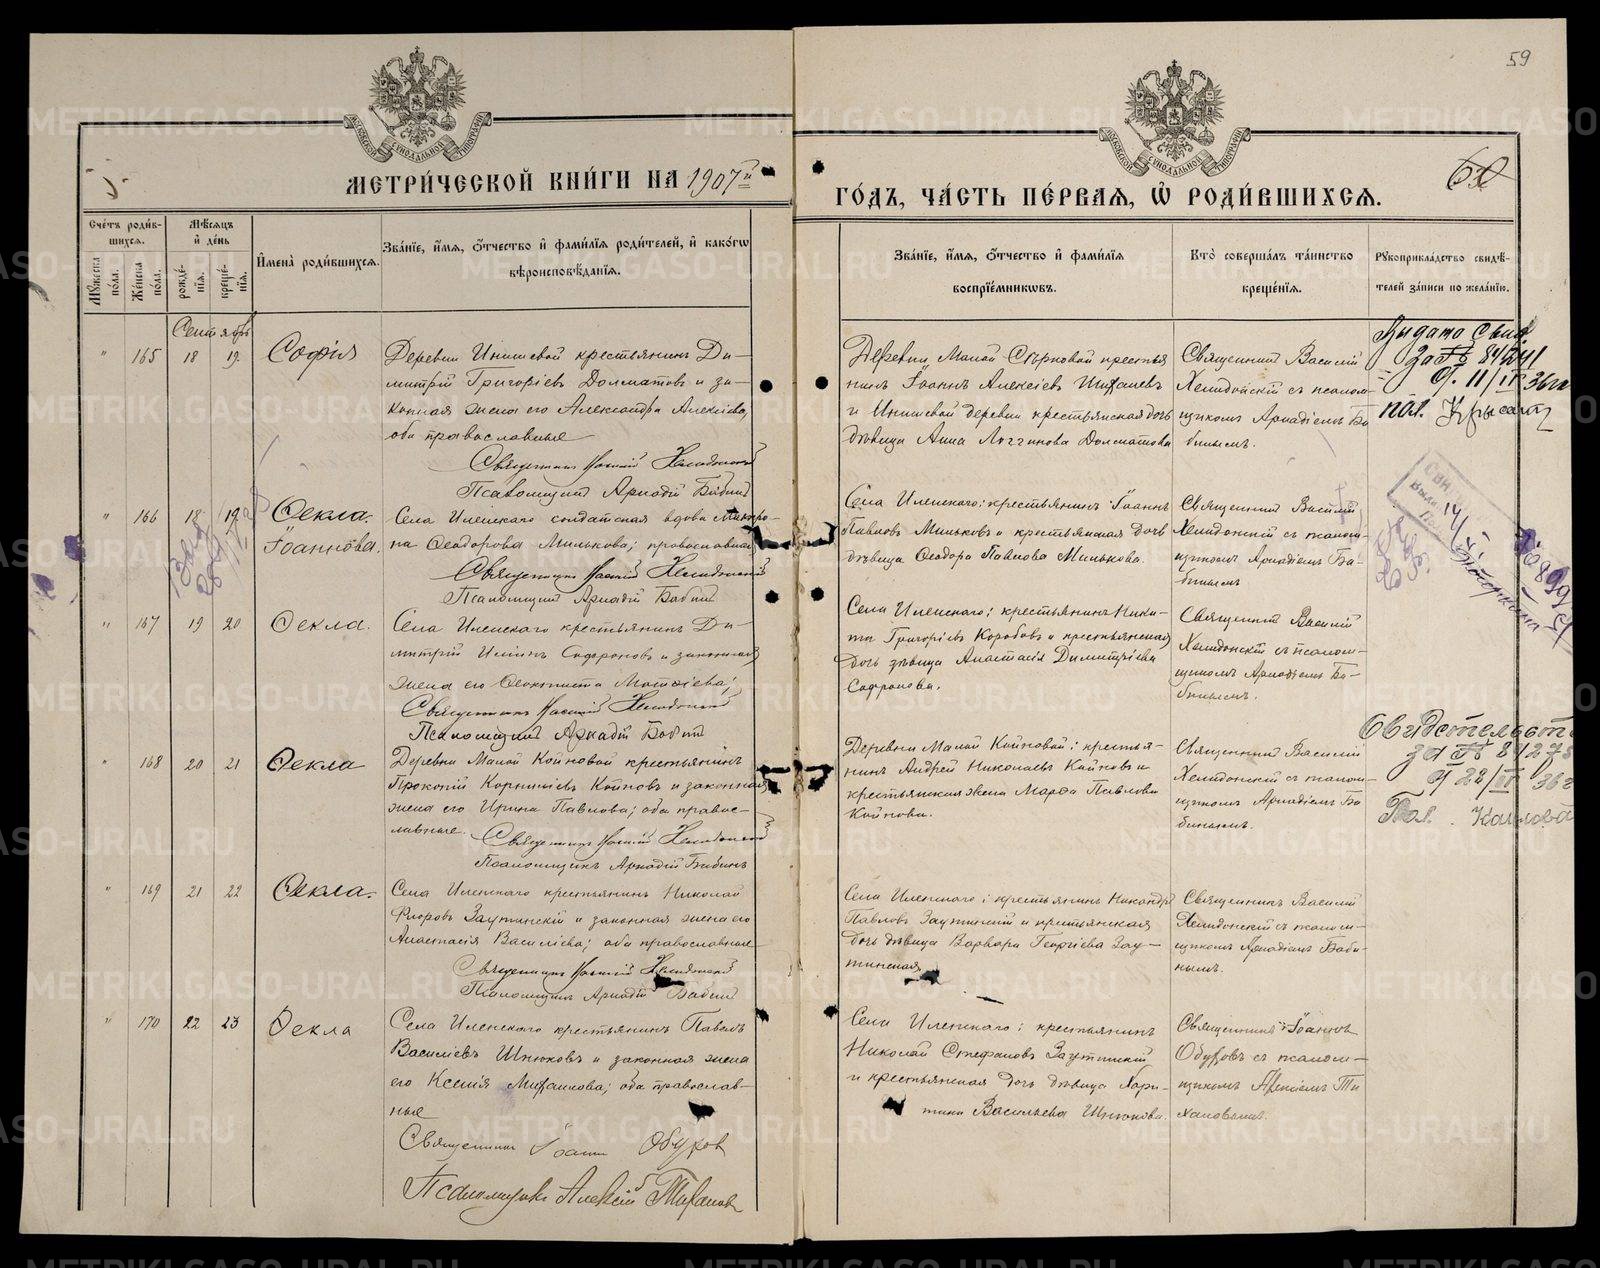 59
60
МЕТРИ́ЧЕСКОЙ КНИ́ГИ НА 1907й
ГО́ДЪ, ЧА́СТЬ ПЕ́РВАЯ, Ѡ РОДИ́ВШИХСЯ.
МОСКОВСКОЙ СѴНОДАЛЬНОЙ ТИПОГРАФІИ
МОСКОВСКОЙ СѴНОДАЛЬНОЙ ТИПОГРАФІИ
Сче́тъ роди́в-
шихся.
Мѹ́жеска по́ла.
Же́нска по́ла.
Мѣ́сяцъ и҆ де́нь
рожде́нїѧ.
креще́нїѧ.
И҆мена̀ роди́вшихсѧ.
Зва́нїе, и҆́мѧ, ѻ҆́тчество и҆ фами́лїѧ роди́телей, и҆ какогѡ
вѣроисповѣ́данїѧ.
Зва́нїе, и҆́мѧ, ѻ҆́тчество и҆ фами́лїѧ
воспрїе́мниковъ.
Кто̀ соверша́лъ та́инство
креще́нїѧ.
Рѹкоприкла́дство свидѣ́-
телей за́писи по жела́нїю.
Сентябрь
" 165 18 19 Софія
Деревни Инишевой крестьянинъ Ди-
митрій Григоріевъ Долматовъ и за-
конная жена его Александра Алексіева,
оба православные
Священникъ Василій Хелидонскій
Псаломщикъ Аркадій Бабинъ
Деревни Малой Серковой крестья
нинъ Іоаннъ Алексіевъ
и Инишевой деревни крестьянская дочь
дѣвица Анна Логгинова Долматова
Священникъ Василій
Хелидонскій съ псалом-
щикомъ Аркадіемъ Ба
бинымъ.
Выдано свид
за № 84/241
от. 11/III 36 г
пол.
" 166 18 19 Ѳекла
Іоаннова.
Села Иленскаго солдатская вдова Матро-
на Ѳеодорова Минькова; православная
Священникъ Василій Хелидонскій
Псаломщикъ Аркадій Бабинъ
Села Иленскаго: крестьянинъ Іоаннъ
Павловъ Миньковъ и крестьянская дочь
дѣвица Ѳеодора Павлова Минькова.
Священникъ Василій
Хелидонскій съ псалом-
щикомъ Аркадіемъ Ба-
бинымъ
" 167 19 20 Ѳекла.
Села Иленскаго крестьянинъ Ди-
митрій Иліинъ Софроновъ и законная
жена его Ѳеоктиста Матѳіева;
Священникъ Василій Хелидонскій
Псаломщикъ Аркадій Бабинъ
Села Иленскаго: крестьянинъ Ники-
та Григоріевъ Коробовъ и крестьянская
дочь дѣвица Анастасія Димитріева
Софронова.
Священникъ Василій
Хелидонскій съ псалом-
щикомъ Аркадіемъ Ба-
бинымъ.
" 168 20 21 Ѳекла
Деревни Малой Койновой крестьянинъ
Прокопій Корниліевъ Койновъ и законная
жена его Ирина Павлова; оба правос-
лавные.
Священникъ Василій Хелидонскій
Псаломщикъ Аркадій Бабинъ
Деревни Малой Койновой: крестья-
нинъ Андрей Николаевъ Койновъ и
крестьянская жена Марѳа Павлова
Койнова.
Священникъ Василій
Хелидонскій съ псалом-
щикомъ Аркадіемъ Ба
бинымъ.
Свидетельств
за № 84/278
от 22/III 36 г
Пол.
" 169 21 22 Ѳекла.
Села Иленскаго крестьянинъ Николай
Флоровъ Заутинскій и законная жена его
Анастасія Василіева; оба православные
Священникъ Василій Хелидонскій
Псаломщикъ Аркадій Бабинъ
Села Иленскаго: крестьянинъ Никандръ
Павловъ Заутинскій и крестьянская
дочь дѣвица Варвара Георгіева Зау-
тинская
Священникъ Василій
Хелидонскій съ псалом-
щикомъ Аркадіемъ Баби-
нымъ.
" 170 22 23 Ѳекла
Села Иленскаго крестьянинъ Павелъ
Василіевъ Шнюковъ и законная жена
его Ксенія Михаилова; оба православ-
ные
Священникъ Іоаннъ Обуховъ
Псаломщикъ Алексій Тихановъ
Села Иленскаго: крестьянинъ
Николай Стефановъ Заутинскій
и крестьянская дочь дѣвица Хари-
тина Васильева Шнюкова.
Священникъ Іоаннъ
Обуховъ съ псалом-
щикомъ Алексіемъ Ти
хановымъ.
METRIKI.GASO-URAL.RU